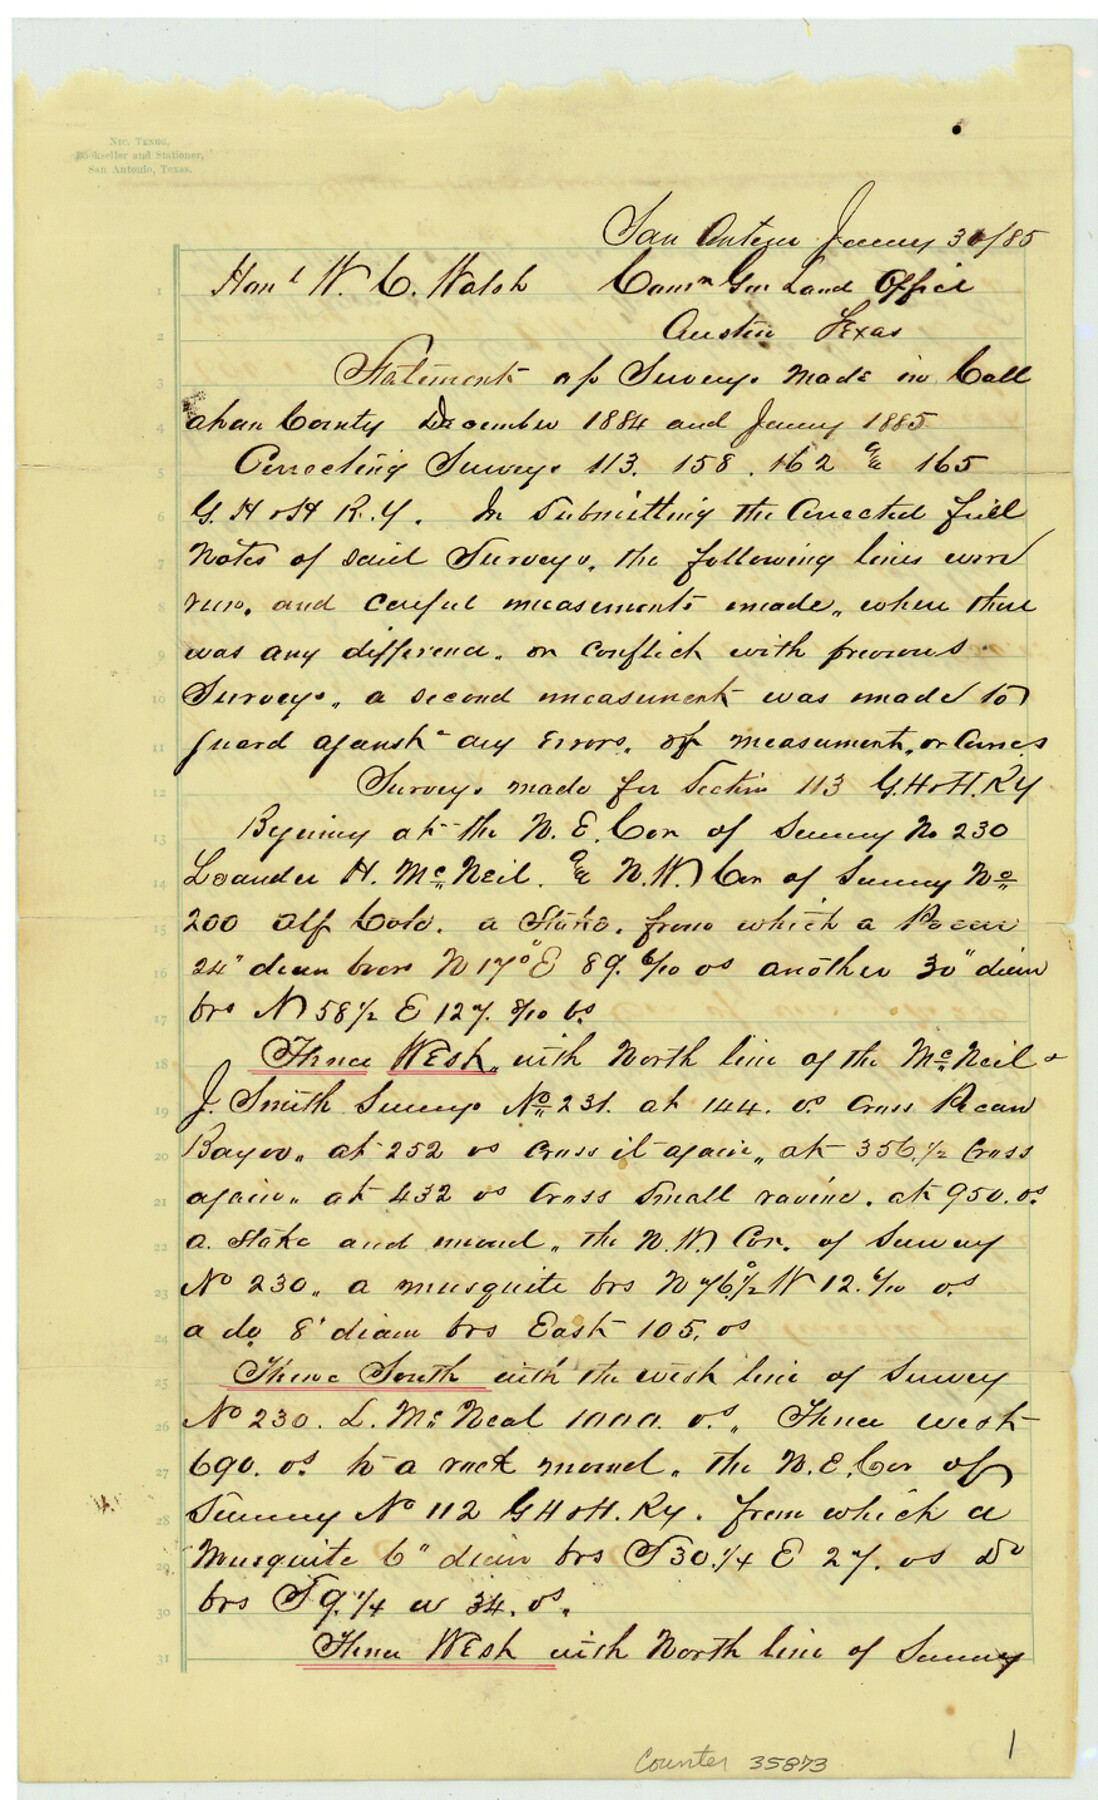 Nic. Tengg,
Bookseller and Stationer,
San Antonio, Texas.
San Antonio Jany 30/85
Honl W. C. Walsh Comn Gen Land Office
Austin Texas
Statement of Surveys made in Call
ahan County December 1884 and Jany 1885
Correcting Surveys 113. 158. 162 & 165
G. H & H R.Y. In Submitting the Corrected field
Notes of said Surveys, the following lines were
run, and careful measurements made, where there
was any difference, or conflict with previous
Surveys, a second measurement was made to
guard against any Errors, of measurement, or
Surveys made for Section 113 G.H & H. RY
Begining at the N. E. Cor of Survey No 230
Leander H. Mc Neil. & N.W. Cor of Survey No
200 a Stake. from which a Pecan
24" diam bears N 17° E 89. 6/10 vs another 30" diam
brs N 58 1/2 E 127. 8/10 vs.
Thence West, with North line of the Mc Neil &
J. Smith Surveys No 231. at 144. vs. Cross Pecan
Bayou, at 252 vs Cross it again, at 356. 1/2 Cross
again, at 432 vs Cross Small ravine, at 950. vs.
a. Stake and mound, the N. W. Cor. of Survey
No 230, a musquite brs N 76°1/2 W 12. 6/10 vs.
a do 8" diam brs East 105, vs
Thence South with the west line of Survey
No 230. L. Mc Neal 1000. vs., Thence west
690. vs. to a rock mound, the N. E. Cor of
Survey No 112 G H & H. Ry. from which a
Musquite 6" diam brs S 30. 1/4 E 27. vs Do
brs S 9. 1/4 W 34. vs.
Thence West with North line of Survey
1
Counter 35873
1
2
3
4
5
6
7
8
9
10
11
12
13
14
15
16
17
18
19
20
21
22
23
24
25
26
27
28
29
30
31